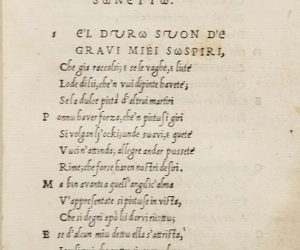 SωNETTω.
S E'L DURω SUON DE
GRAVI MIEI SωSPIRI,
Che gia raccolsi; e se le vaghe, e liete
Lode di lei, che'n vui dipinte havete;
Se la dulce pietà d'altrui martiri
P onnu haver forza, che'n pietusi giri
Si volgan lj'ocki; unde suavi, e quete
Vuci n'attenda; allegre andar pussete
Rime; che forse haren nostri desiri.
M a bin avanti a quell'angelic'alma
V'appresentate sì pietuse in vista,
Che si degni apω lεi darvi ricettω;
E se d'alcun miω dettω ella s'attrista,